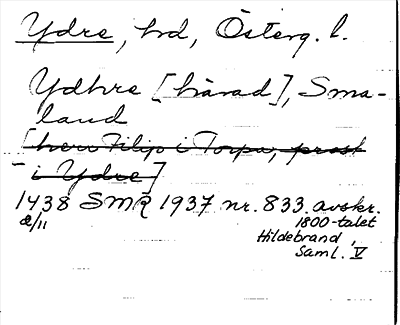 Ydre, hd, Österg. l.
Ydhre [härad], Sma-
land
[herr Filip i Torpa, prost
i Ydre]
1438 SMR 1937 nr. 833. avskr.
2/11 1800-talet
Hildebrand,
Saml. V